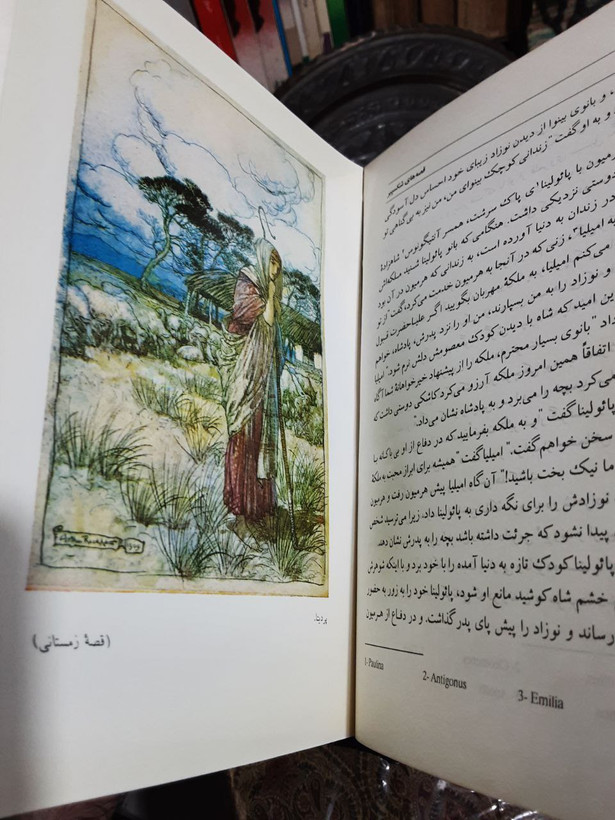 پردیتا.
(قصهٔ زمستانی)
قصه‌های شکسپیر
و بانوی بینوا از دیدن نوزاد زیبای خود احساس دل آسودگی
و به او گفت "زندانی کوچک بینوای من، من نیز به بی‌گناهی تو
رمیون با پائولینا¹ی پاک سرشت، همسر آنتیگونوس² شاهزادهٔ
دوستی نزدیکی داشت. هنگامی که بانو پائولینا شنید ملکه‌اش
در زندان به دنیا آورده است، به زندانی که هرمیون در آن بود
به امیلیا³، زنی که در آنجا به هرمیون خدمت می‌کرد، گفت "از تو
می‌کنم امیلیا، به ملکهٔ مهربان بگویید اگر علیاحضرت قبول
و نوزاد را به من بسپارند، من او را نزد پدرش، پادشاه، خواهم
این امید که شاه با دیدن کودک معصومش دلش نرم شود." امیلیا
داد "بانوی بسیار محترم، ملکه را از پیشنهاد خیرخواهانهٔ شما آگاه
اتفاقاً همین امروز ملکه آرزو می‌کرد کاشکی دوستی داشت که
می‌کرد بچه را می‌برد و به پادشاه نشان می‌داد."
پائولینا گفت "و به ملکه بفرمایید که در دفاع از او بی‌باکانه با
سخن خواهم گفت." امیلیا گفت "همیشه برای ابراز محبت به ملکهٔ
ما نیک بخت باشید!" آن گاه امیلیا پیش هرمیون رفت و هرمیون
نوزادش را برای نگه داری به پائولینا داد، زیرا می‌ترسید شخص
پیدا نشود که جرئت داشته باشد بچه را به پدرش نشان دهد.
پائولینا کودک تازه به دنیا آمده را با خود برد و با اینکه شوهرش
خشم شاه کوشید مانع او شود، پائولینا خود را به زور به حضور
رساند و نوزاد را پیش پای پدر گذاشت. و در دفاع از هرمیون
1- Paulina
2- Antigonus
3- Emilia